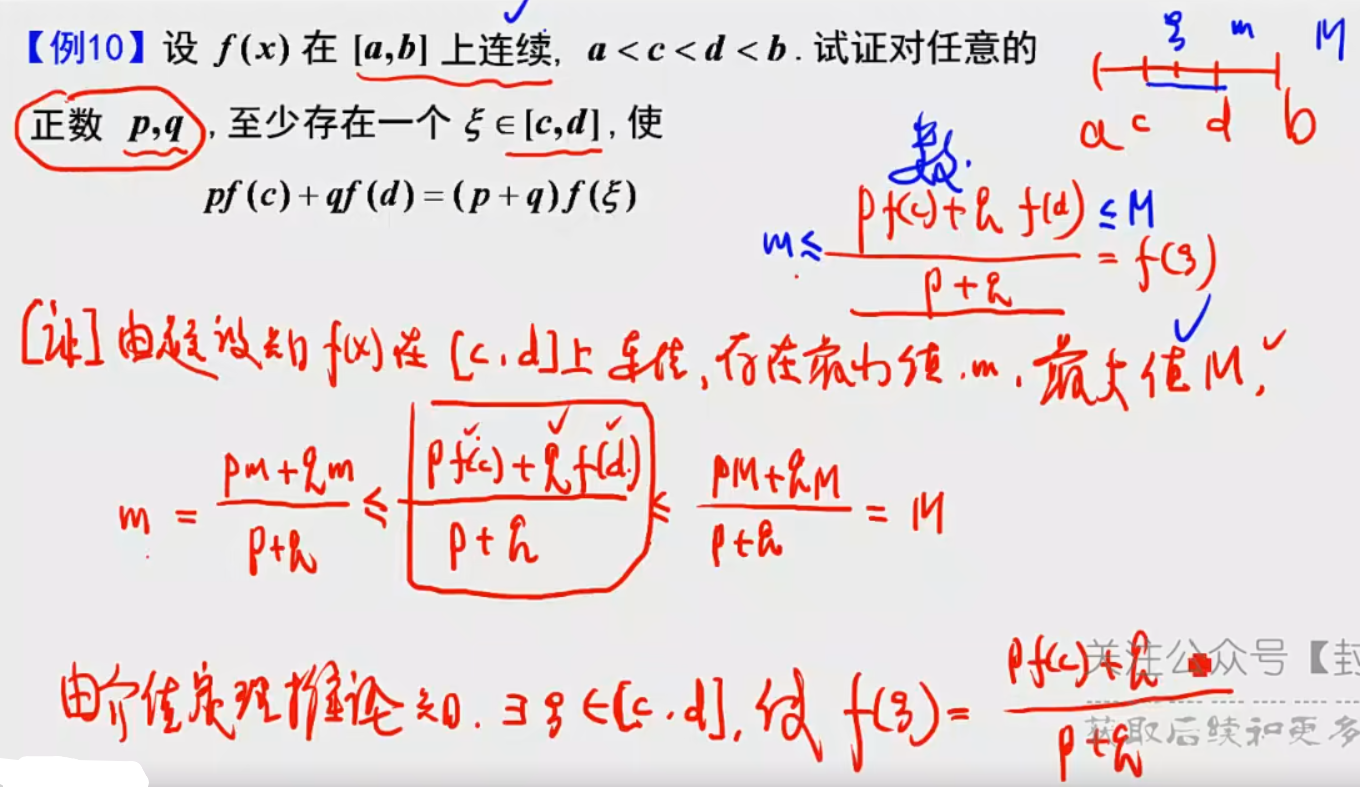 【例10】设 f(x) 在 [a,b] 上连续, a < c < d < b . 试证对任意的
正数 p,q , 至少存在一个 ξ∈[c,d] , 使
pf(c)+qf(d)=(p+q)f(ξ)
ξ m M
a c d b
数.
m ≤ (pf(c)+qf(d))/(p+q) ≤ M
= f(ξ)
[证] 由题设知 f(x) 在 [c,d] 上连续, 存在最小值 m, 最大值 M,
m = (pm+qm)/(p+q) ≤ (pf(c)+qf(d))/(p+q) ≤ (pM+qM)/(p+q) = M
由介值定理推论知. ∃ξ∈[c,d], 使 f(ξ)= (pf(c)+q)/(p+q)
关注公众号【封
获取后续和更多